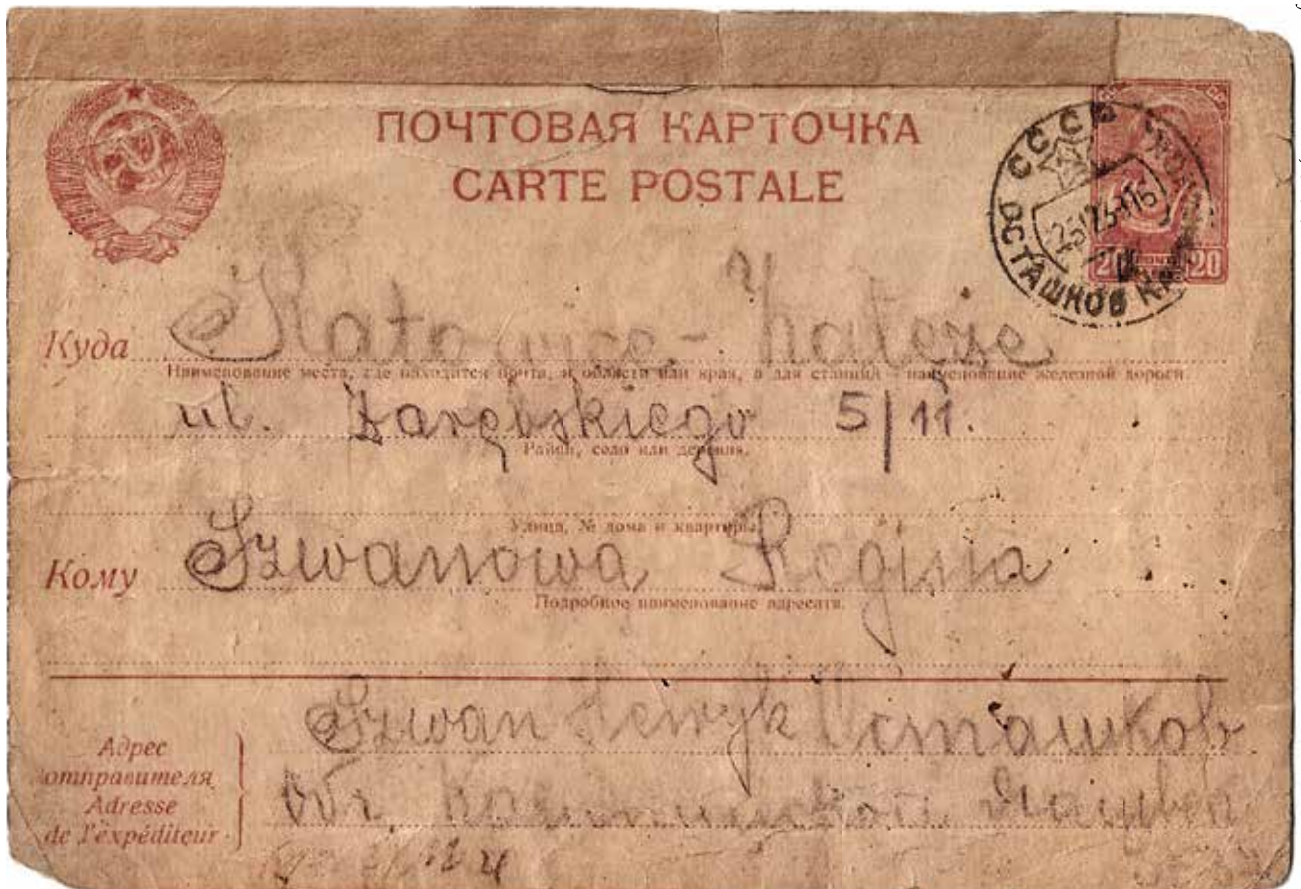 ПОЧТОВАЯ КАРТОЧКА
CARTE POSTALE
СССР
ОСТАШКОВ
20 20
Куда Katowice - Załęże
Наименование места, где находится почта, и области или края, а для станций – наименование железной дороги.
ul. Zarębskiego 5/11.
Район, село или деревня.
Улица, № дома и квартиры.
Кому Szwanowa Regina
Подробное наименование адресата.
Szwan Henryk Осташков
Адрес
отправителя
Adresse
de l'expéditeur